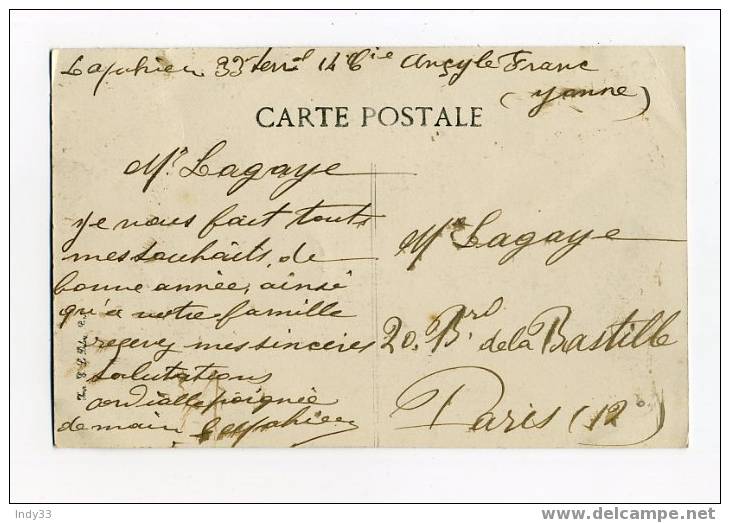 33 Terral 14 Cie Ancy le Franc
(Yonne)
CARTE POSTALE
Mr Lagaye
Je vous fait touts
mes souhaits, de
bonne année, ainsé
qu'a votre famille
recevez mes sinceres
salutations
cordialle poignée
de main
Mr Lagaye
20. Brd de la Bastille
Paris (12e)
Indy33
www.delcampe.net